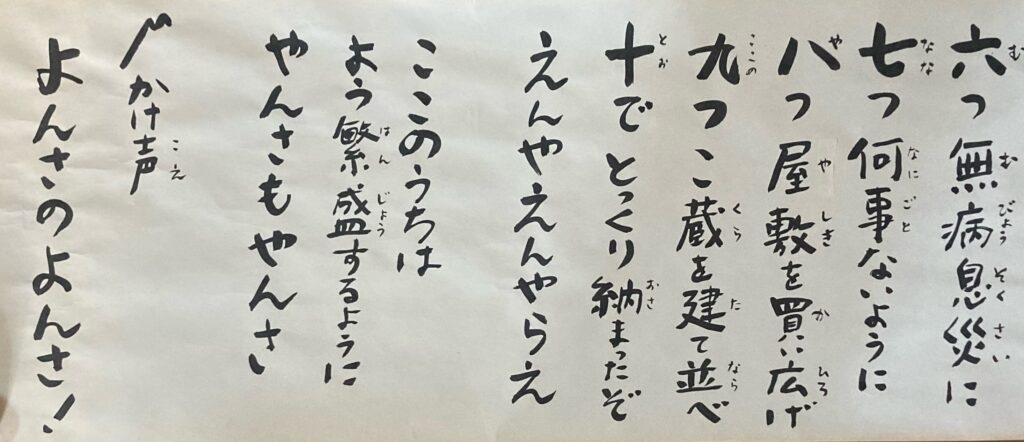 六つ無病息災に
七つ何事ないように
八つ屋敷を買い広げ
九つこ蔵を建て並べ
十でとっくり納まったぞ
えんやえんやらえ
ここのうちは
よう繁盛するように
やんさもやんさ
かけ声
よんさのよんさ!